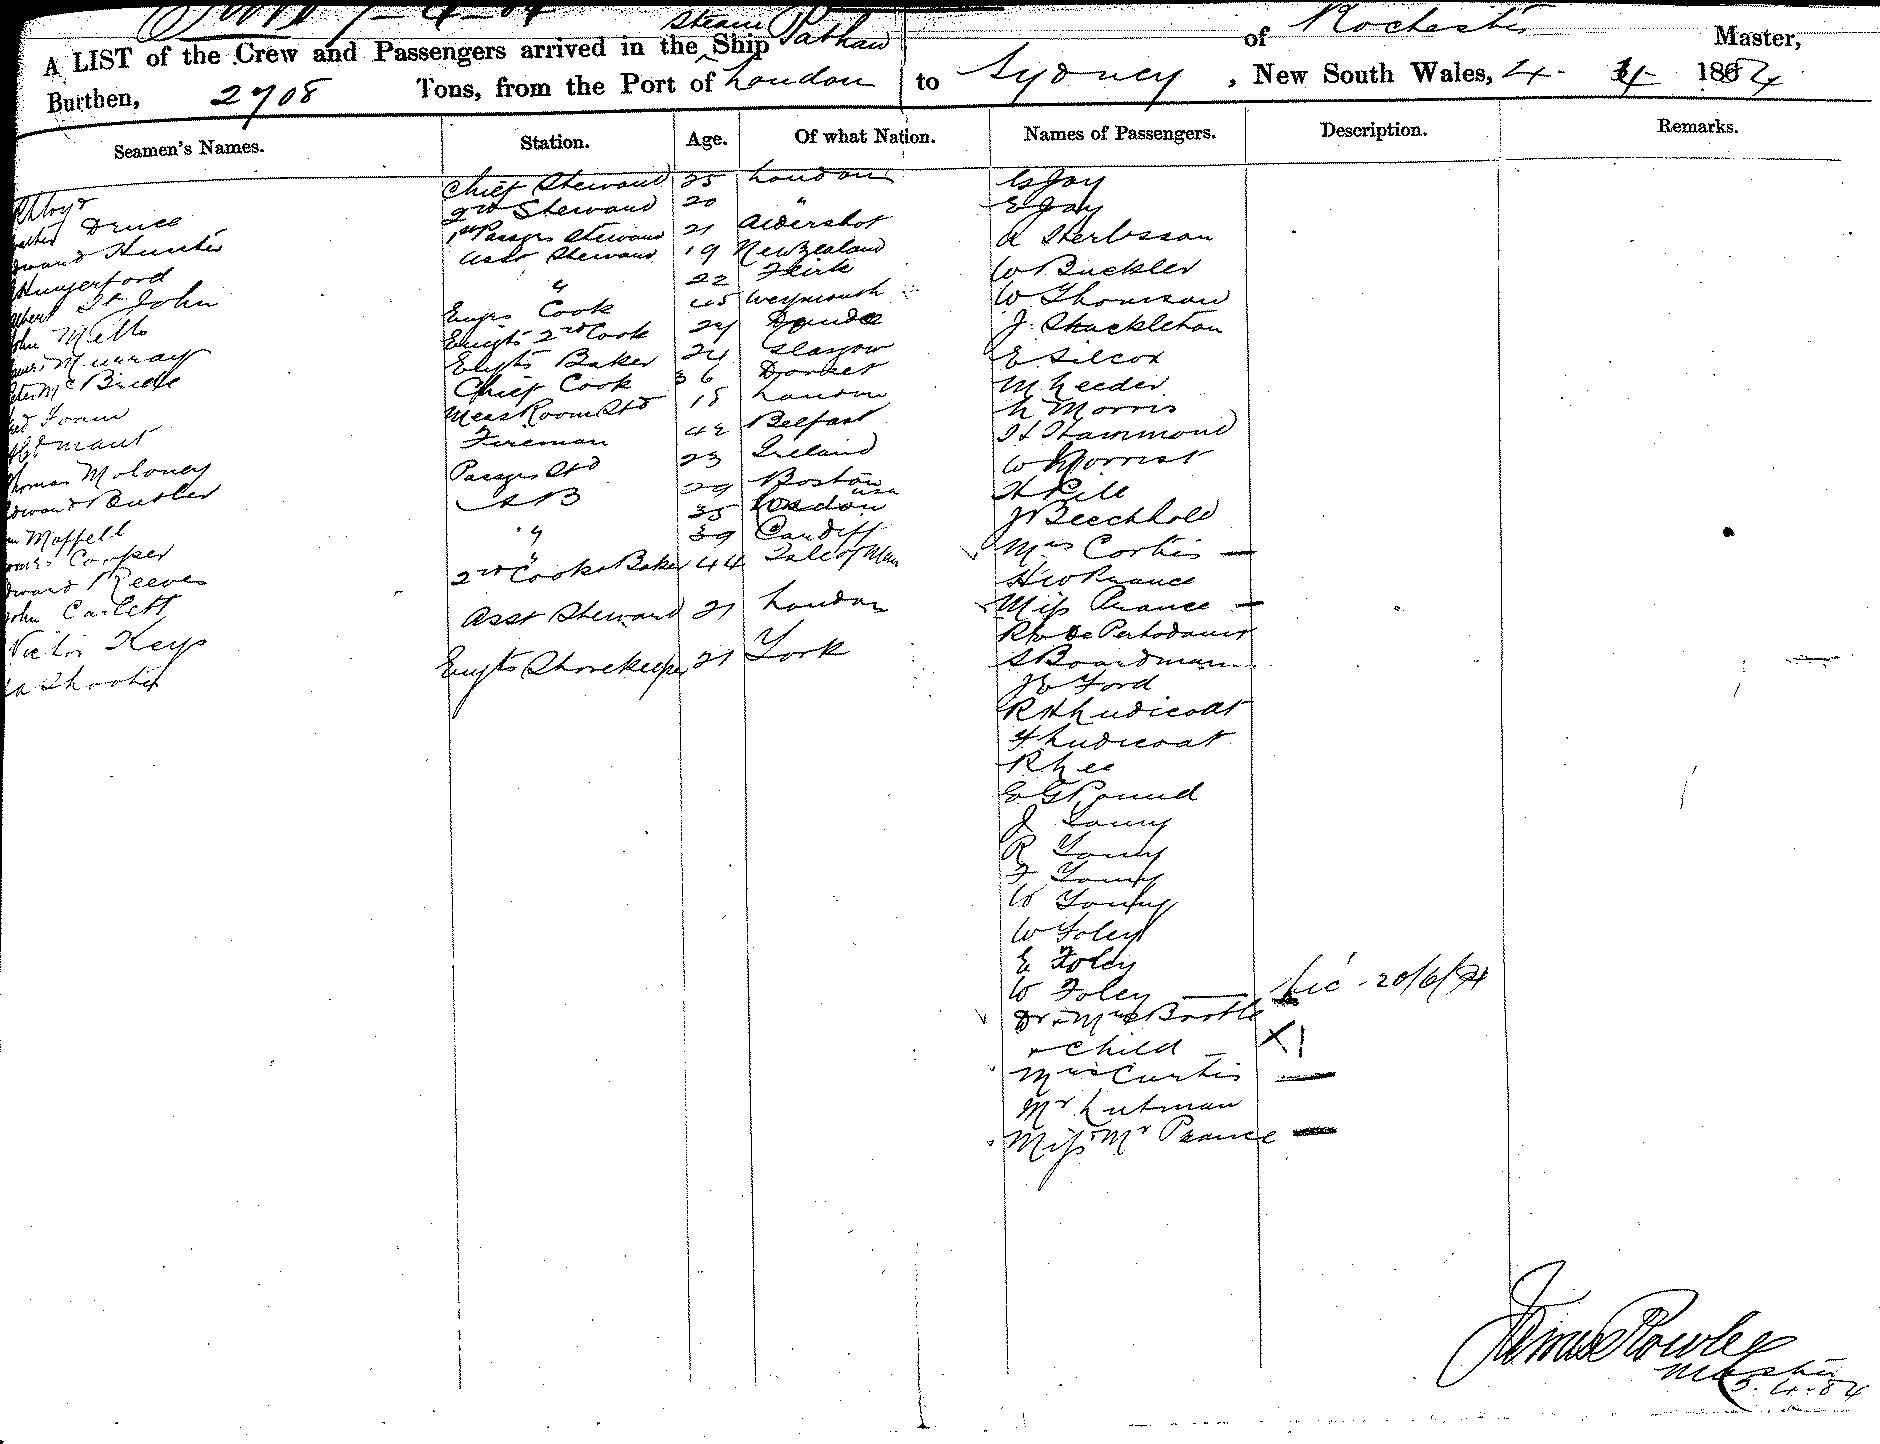 7-4-84
A LIST of the Crew and Passengers arrived in the Steam Ship Pathan of Rochester Master,
Burthen, 2708 Tons, from the Port of London to Sydney, New South Wales, 4- 4- 1884
Seamen's Names. Station. Age. Of what Nation. Names of Passengers. Description. Remarks.
Chief Steward 25 London G Jay
Druce 2nd Steward 20 " E Jay
Hunter 1st Passgrs Steward 21 Aldershot A Herbsson
Hungerford Asst Steward 19 New Zealand W Buckler
St John " 22 W Thomson
Mills Engrs Cook 45 Weymouth J. Shackleton
Murray 2nd Cook 24 Dundee E Silcox
McBride Baker 24 Glasgow M Leeder
Chief Cook 36 Dorset N Morris
Mess Room Std 18 London H Hammond
Thomas Moloney Fireman 42 Belfast W Morrist
Edward Butler Passgrs Std 23 Ireland H Pile
Maffell AB 29 Boston USA J Beechhold
Cooper " 35 London Mrs Cortis
Edward Reeves " 39 Cardiff H W Prance
John Carlett 2nd Cook & Baker 44 Isle of Man Miss Prance
Victor Keys Asst Steward 21 London
Shooter Storekeeper 21 York S Boardman
J E Ford
R H Ludicoat
F Ludicoat
R Lee
E G Pound
J Young
R Young
F Young
W Young
W Foley
E Foley
W Foley
Dr & Mrs Bootle
& Child
Mrs Curtis
Mr Lutman
Miss & Mr Prance
James Rowley
Master
5.4.84